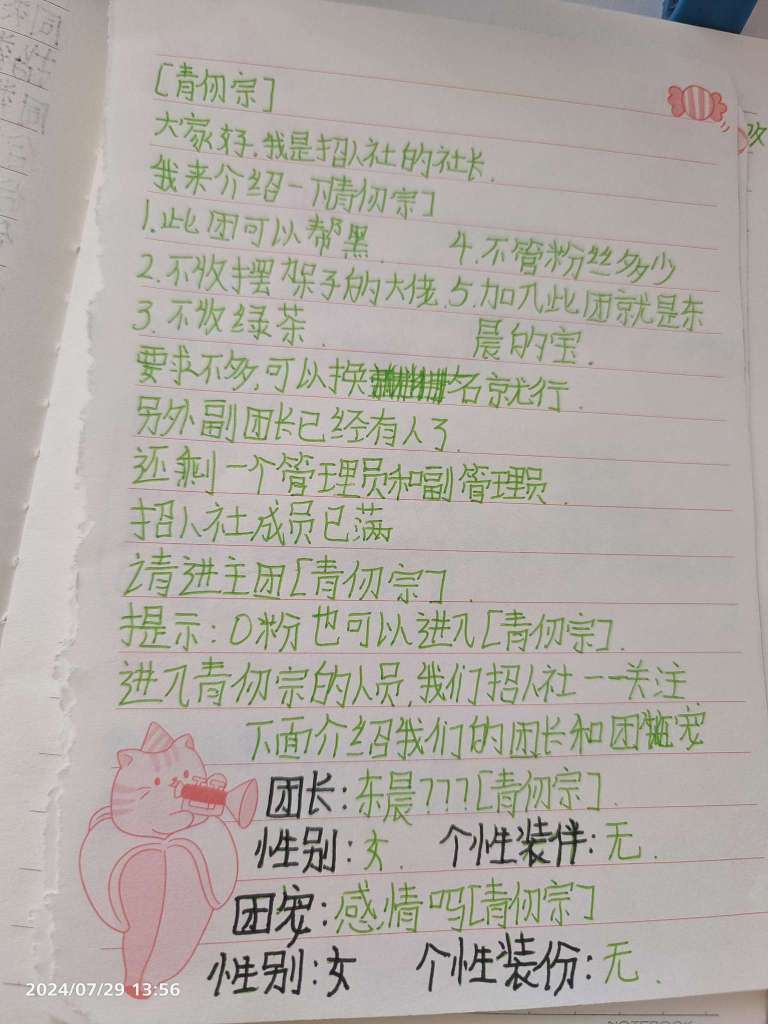 [青仞宗]
大家好,我是招人社的社长.
我来介绍一下[青仞宗]
1.此团可以帮黑. 4.不管粉丝多少
2.不收摆架子的大佬. 5.加入此团就是东
3.不收绿茶. 晨的宝.
要求不多,可以换名就行.
另外副团长已经有人了.
还剩一个管理员和副管理员.
招人社成员已满
请进主团[青仞宗].
提示:0粉也可以进入[青仞宗].
进入青仞宗的人员,我们招人社一一关注
下面介绍我们的团长和团宠
团长:东晨???[青仞宗].
性别:女. 个性装伴:无.
团宠:感情吗[青仞宗]
性别:女 个性装份:无.
2024/07/29 13:56
NOTEBOOK